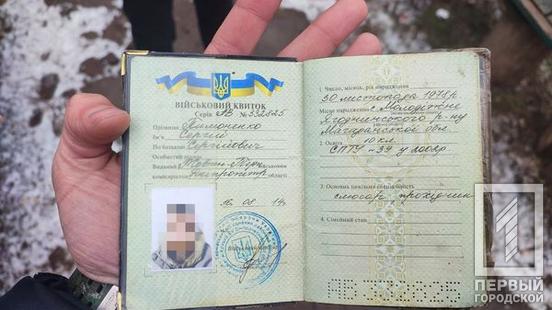 ВІЙСЬКОВИЙ КВИТОК
Серія АВ № 332825
Прізвище Тимоченко
Ім'я Сергій
По батькові Сергійович
Особистий
Виданий Жовтн.
комісаріатом області
16 08 14
1. Число, місяць, рік народження
30 листопада 1978 р
Місце народження с. Молодіжне
Ягоднинського р-ну
Магаданської обл
2. Освіта 10 кл.
СПТУ-39 у
3. Основна цивільна спеціальність
слюсар прохідник
4. Сімейний стан
АВ 332825
1
ПЕРВЫЙ
ГОРОДСКОЙ